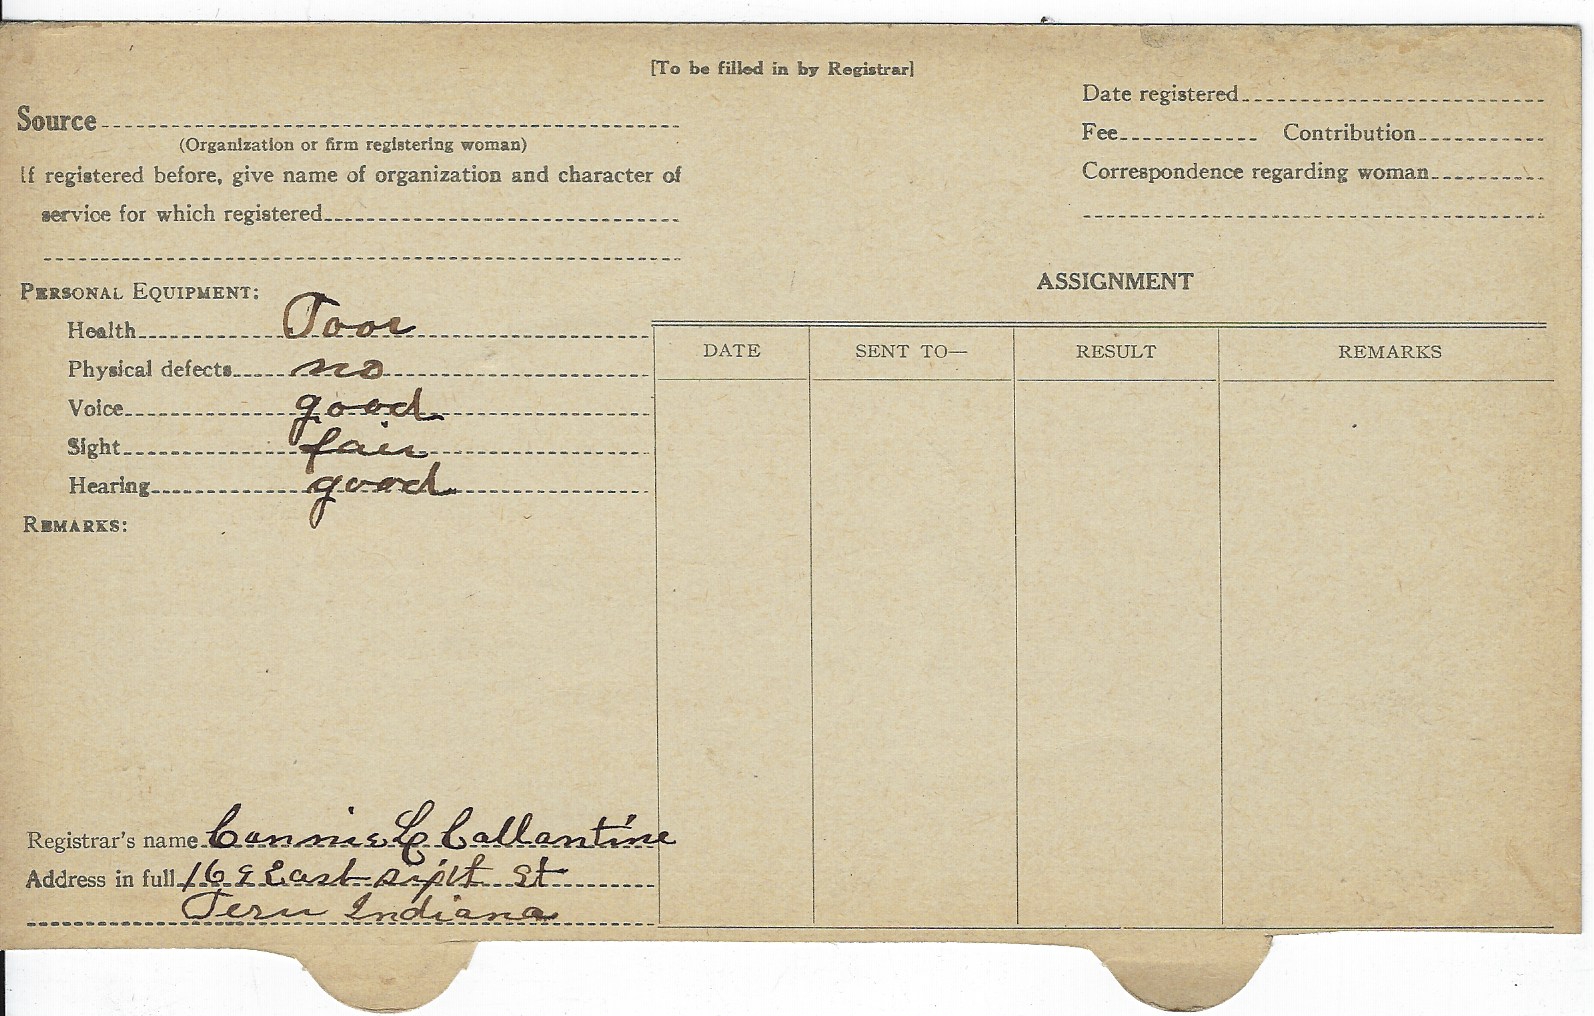 [To be filled in by Registrar]
Source
(Organization or firm registering woman)
If registered before, give name of organization and character of
service for which registered
Date registered
Fee Contribution
Correspondence regarding woman
PERSONAL EQUIPMENT:
Health Poor
Physical defects no
Voice good
Sight fair
Hearing good
REMARKS:
ASSIGNMENT
DATE SENT TO— RESULT REMARKS
Registrar's name Cannie C Callantine
Address in full East sixth St
Peru Indiana